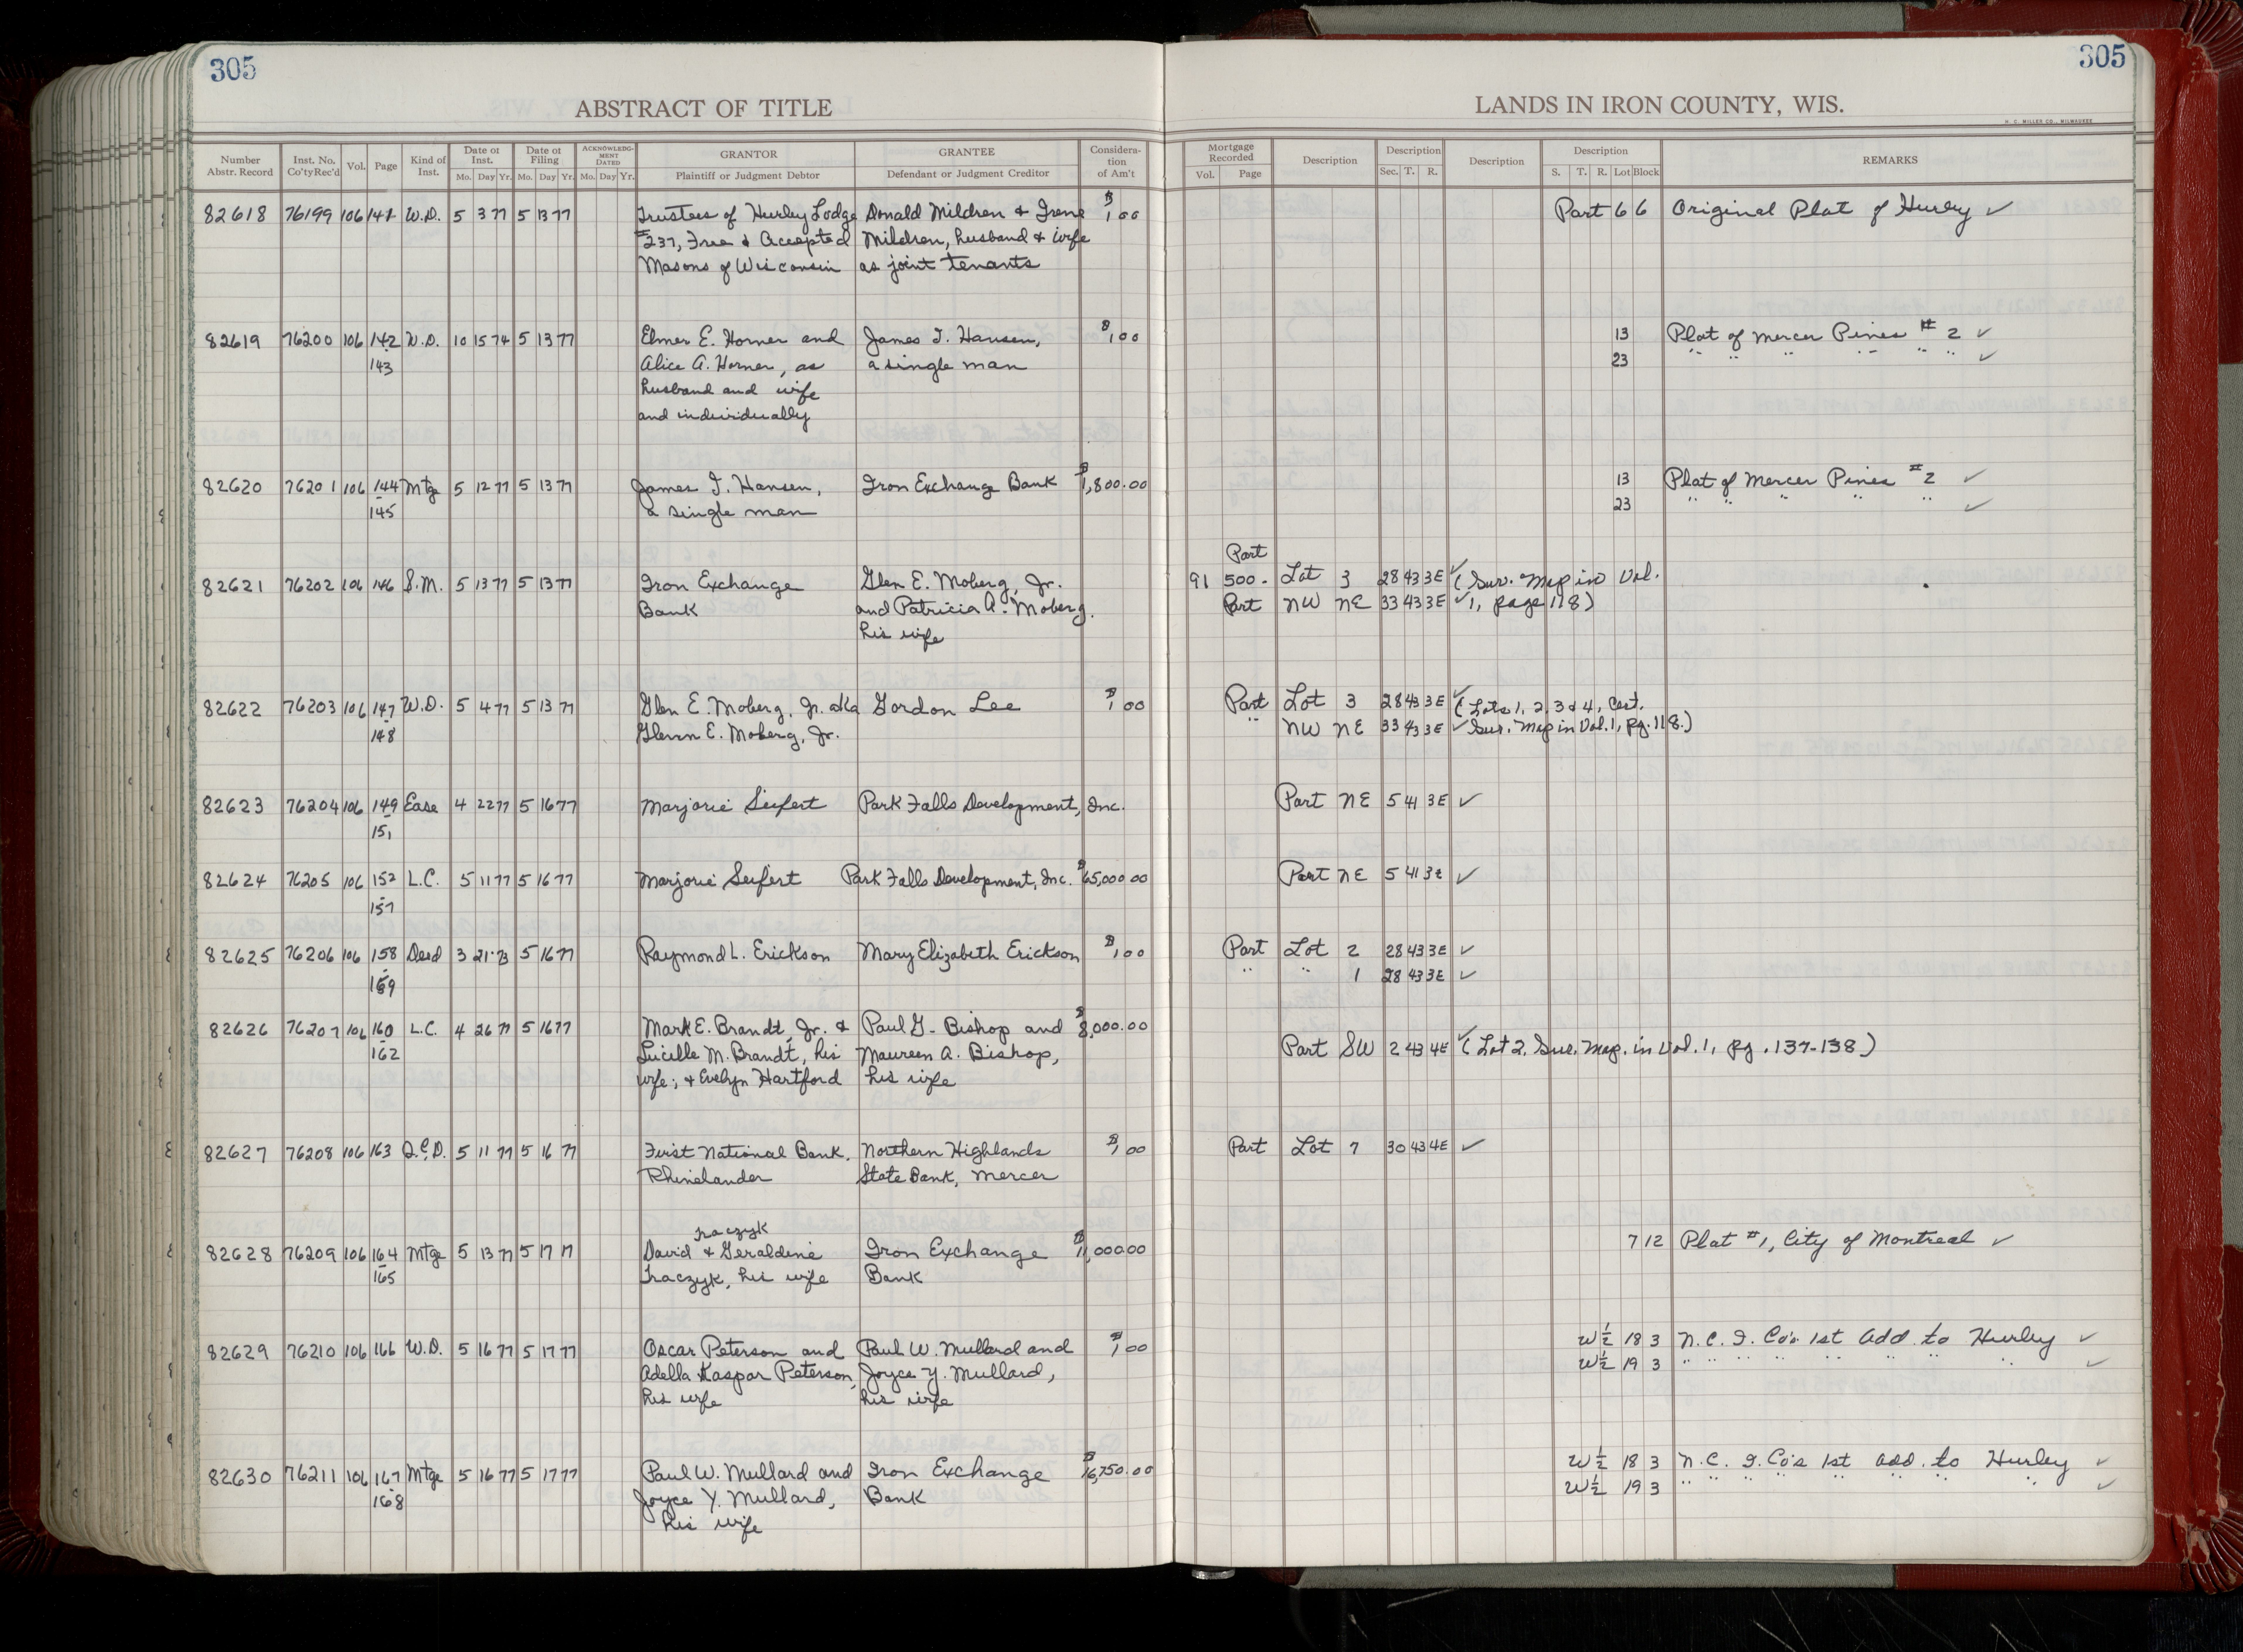 305
305
ABSTRACT OF TITLE
LANDS IN IRON COUNTY, WIS.
H. C. MILLER CO., MILWAUKEE
Number Abstr. Record | Inst. No. Co'ty Rec'd | Vol. | Page | Kind of Inst. | Date of Inst. Mo. Day Yr. | Date of Filing Mo. Day Yr. | ACKNOWLEDGMENT DATED Mo. Day Yr. | GRANTOR Plaintiff or Judgment Debtor | GRANTEE Defendant or Judgment Creditor | Consideration of Am't | Mortgage Recorded Vol. Page | Description | Description Sec. T. R. | Description | Description S. T. R. Lot Block | REMARKS
82618 76199 106 141 W.D. 5 3 77 5 13 77 Trustees of Hurley Lodge Donald Mildren & Irene $1.00 Part 6 6 Original Plat of Hurley ✓
#237, Free & Accepted Mildren, husband & wife
Masons of Wisconsin as joint tenants
82619 76200 106 142 W.D. 10 15 74 5 13 77 Elmer E. Horner and James T. Hansen, $1.00 13 Plat of Mercer Pines #2 ✓
-143 Alice A. Horner, as a single man 23 " " " " " " ✓
husband and wife
and individually
82620 76201 106 144 Mtge 5 12 77 5 13 77 James T. Hansen, Iron Exchange Bank $1,800.00 13 Plat of Mercer Pines #2 ✓
-145 a single man 23 " " " " " ✓
Part
82621 76202 106 146 S.M. 5 13 77 5 13 77 Iron Exchange Glen E. Moberg, Jr. 91 500- Lot 3 28 43 3E ✓ (Sur. Map in Vol.
Bank and Patricia A. Moberg, Part NW NE 33 43 3E ✓ 1, page 118)
his wife
82622 76203 106 147 W.D. 5 4 77 5 13 77 Glen E. Moberg, Jr. aka Gordon Lee $1.00 Part Lot 3 28 43 3E ✓ (Lots 1, 2, 3 & 4, Cert.
-148 Glenn E. Moberg, Jr. " NW NE 33 43 3E ✓ Sur. Map in Vol. 1, pg. 118.)
82623 76204 106 149 Ease 4 22 77 5 16 77 Marjorie Seifert Park Falls Development, Inc. Part NE 5 41 3E ✓
-151
82624 76205 106 152 L.C. 5 11 77 5 16 77 Marjorie Seifert Park Falls Development, Inc. $65,000.00 Part NE 5 41 3E ✓
-157
82625 76206 106 158 Deed 3 21 73 5 16 77 Raymond L. Erickson Mary Elizabeth Erickson $1.00 Part Lot 2 28 43 3E ✓
-159 " " 1 28 43 3E ✓
82626 76207 106 160 L.C. 4 26 77 5 16 77 Mark E. Brandt, Jr. & Paul G. Bishop and $8,000.00
-162 Lucille M. Brandt, his Maureen A. Bishop, Part SW 2 43 4E ✓ (Lot 2, Sur. Map. in Vol. 1, pg. 137-138)
wife; & Evelyn Hartford his wife
82627 76208 106 163 Q.C.D. 5 11 77 5 16 77 First National Bank, Northern Highlands $1.00 Part Lot 7 30 43 4E ✓
Rhinelander State Bank, Mercer
Traczyk
82628 76209 106 164 Mtge 5 13 77 5 17 77 David & Geraldine Iron Exchange $11,000.00 7 12 Plat #1, City of Montreal ✓
-165 Traczyk, his wife Bank
82629 76210 106 166 W.D. 5 16 77 5 17 77 Oscar Peterson and Paul W. Mullard and $1.00 W½ 18 3 N.C.I. Co's 1st Add. to Hurley ✓
Adella Kaspar Peterson, Joyce Y. Mullard, W½ 19 3 " " " " " " " " ✓
his wife his wife
82630 76211 106 167 Mtge 5 16 77 5 17 77 Paul W. Mullard and Iron Exchange $16,750.00 W½ 18 3 N.C. I. Co's 1st add. to Hurley ✓
-168 Joyce Y. Mullard, Bank W½ 19 3 " " " " " " " ✓
his wife